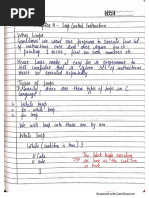 Chapter 4 - Loop Control Instruction
Why Loops
Sometimes we want our programs to execute few set
of instructions over and over again for ex:
printing 1 to 100, first 100 even numbers etc.
Hence loops make it easy for a programmer to
tell computer that a given set of instructions
must be executed repeatedly.
Types of Loops
Primarily there are three types of loops in C
language:
1. While loop
2. do-while loop
3. for loop
We will look into these one by one
While Loop
While (condition is true) {
// Code
// Code
The block keeps executing
as long as the condition
is true
}
Scanned with CamScanner